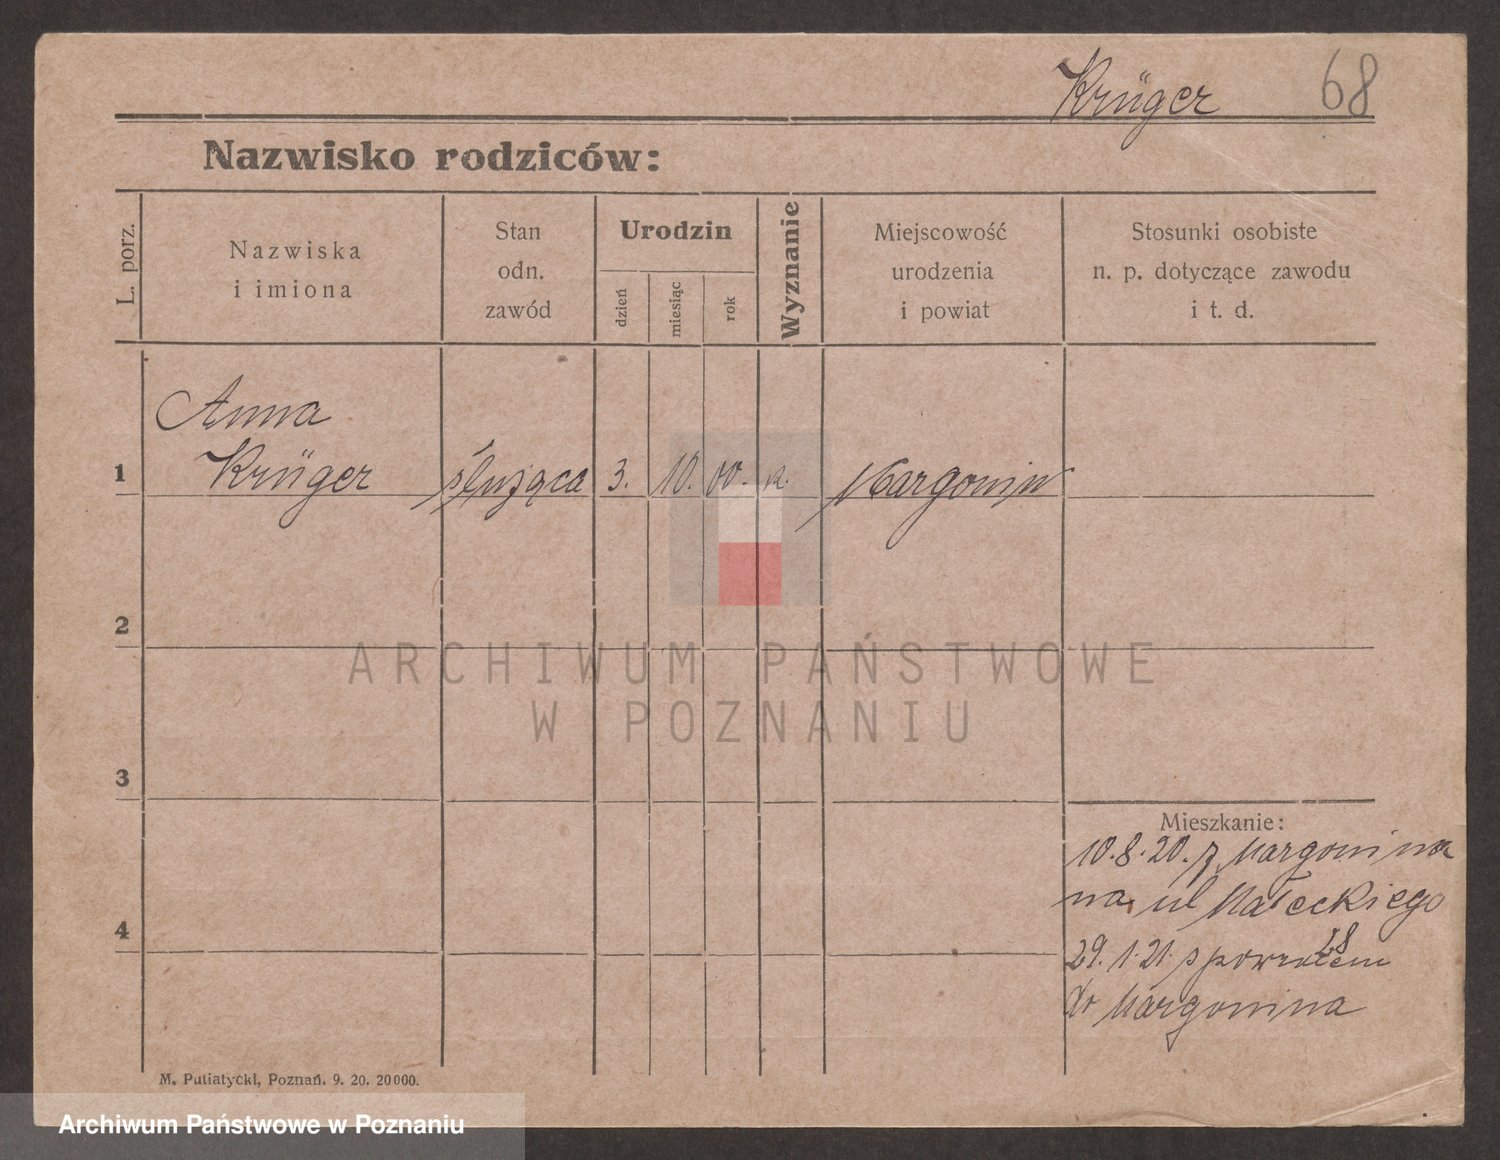 Krüger 68
Nazwisko rodziców:
L. porz.
Nazwiska
i imiona
Stan
odn.
zawód
Urodzin
dzień
miesiąc
rok
Wyznanie
Miejscowość
urodzenia
i powiat
Stosunki osobiste
n. p. dotyczące zawodu
i t. d.
Anna
1 Krüger służąca 3. 10. 00. k. Margonin
2
3
4
Mieszkanie:
10.8.20. z Margonina
na ul Małeckiego
28
29.1.21. spowrotem
do Margonina
M. Putiatycki, Poznań. 9. 20. 20000.
ARCHIWUM PAŃSTWOWE
W POZNANIU
Archiwum Państwowe w Poznaniu